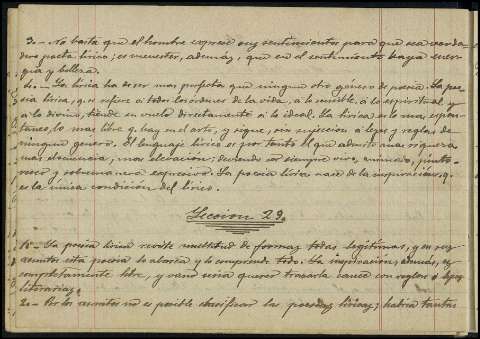 3.- No basta que el hombre exprese sus sentimientos para que sea verda-
dero poeta lírico; es menester, además, que en el sentimiento haya ener-
gía y belleza.
4.- La lírica ha de ser mas perfecta que ningun otro género de poesía. La poe-
sía lírica, q. se refiere á todos los órdenes de la vida, á lo sensible, á lo espiritual y
á lo divino, tiende su vuelo directamente á lo ideal. La lírica es lo mas espon-
táneo, lo mas libre q. hay en el arte, y sigue, sin sujeccion á leyes y reglas de
ningun género. El lenguaje lírico es por tanto el que admite mas riqueza,
mas elocuencia, mas elevacion, debiendo ser siempre vivo, animado, pinto-
resco y sobremanera expresivo. La poesía lírica nace de la inspiracion, q.
es la única condición del lírico.
Leccion 29.
1º- La poesía lírica reviste multitud de formas, todas legítimas, y en sus
asuntos esta poesía lo abarca y lo comprende todo. La inspiración, además, es
completamente libre, y vano seria querer trazarla cauce con reglas ó leyes
literarias.
2.- Por los asuntos no es posible clasificar las poesías líricas; habria tantas